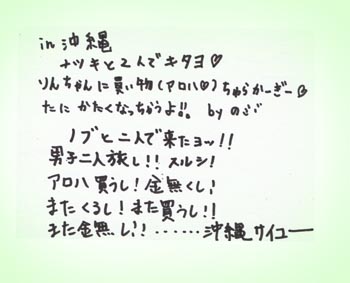 in 沖縄
ナツキと2人でキタヨ♡
りんちゃんに買い物(アロハ♡)ちゅらかーぎー♡
たに かたくなっちゃうよ!! by のぶ
ノブと二人で来たヨッ!!
男子二人旅し!! スルシ!
アロハ買うし!金無くし!
またくるし!また買うし!!
また金無し!! ......沖縄サイコー